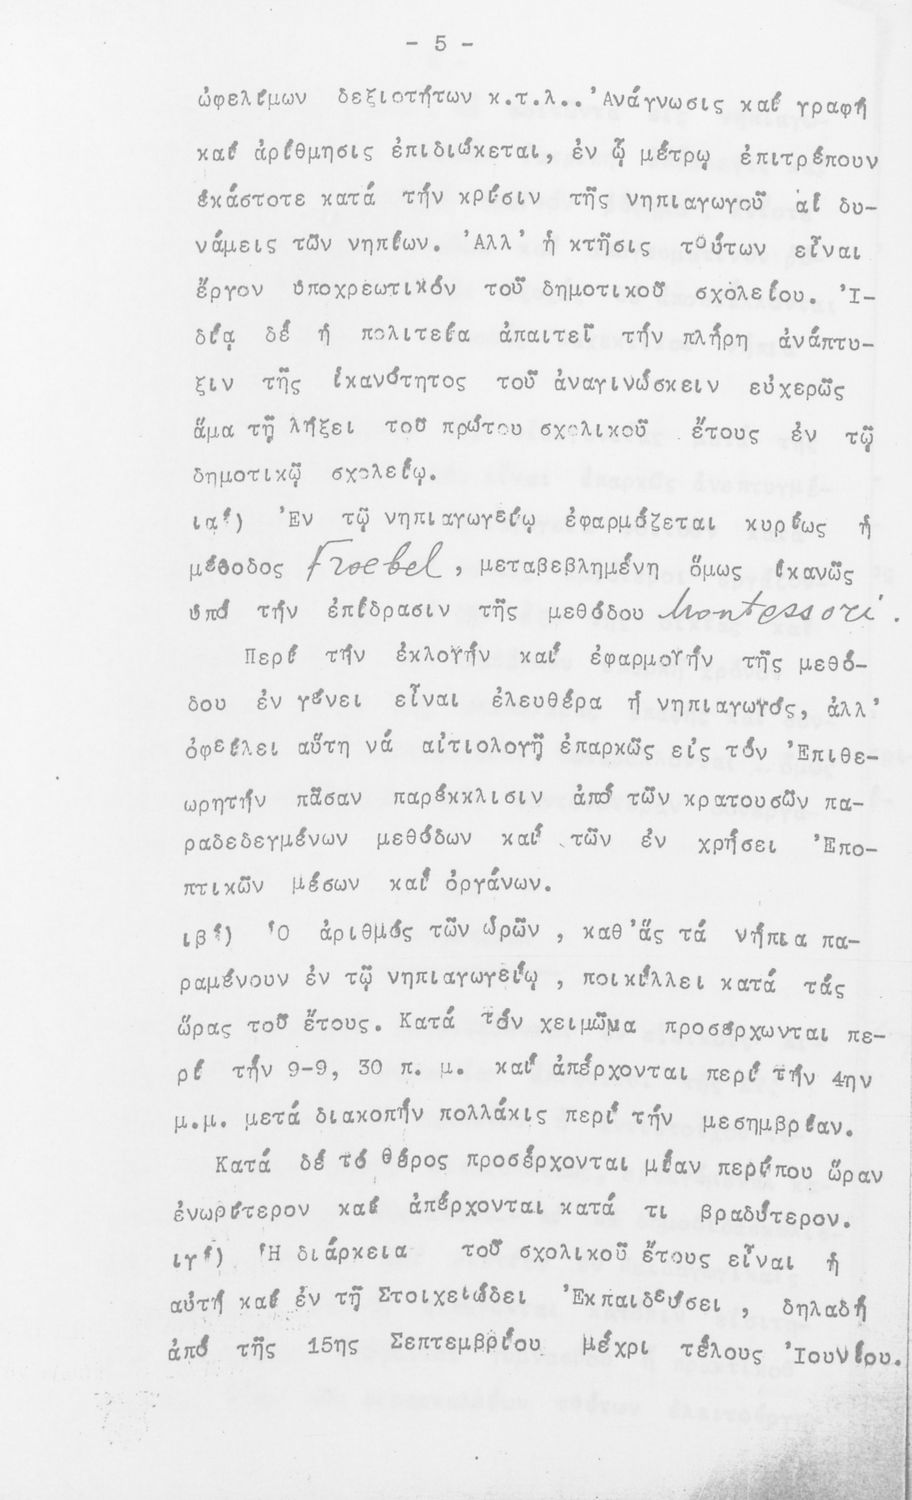 - 5 -
ὠφελίμων δεξιοτήτων κ.τ.λ..'Ανάγνωσις καί γραφή
καί ἀρίθμησις ἐπιδιώκεται, ἐν ᾧ μέτρῳ ἐπιτρέπουν
ἑκάστοτε κατά τήν κρίσιν τῆς νηπιαγωγοῦ αἱ δυ-
νάμεις τῶν νηπίων. 'Αλλ' ἡ κτῆσις τούτων εἶναι
ἔργον ὑποχρεωτικόν τοῦ δημοτικοῦ σχολείου. 'Ι-
δίᾳ δέ ἡ πολιτεία ἀπαιτεῖ τήν πλήρη ἀνάπτυ-
ξιν τῆς ἱκανότητος τοῦ ἀναγινώσκειν εὐχερῶς
ἅμα τῇ λήξει τοῦ πρώτου σχολικοῦ ἔτους ἐν τῷ
δημοτικῷ σχολείῳ.
ια') 'Εν τῷ νηπιαγωγείῳ ἐφαρμόζεται κυρίως ἡ
μέθοδος Froebel, μεταβεβλημένη ὅμως ἱκανῶς
ὑπό τήν ἐπίδρασιν τῆς μεθόδου Montessori.
Περί τήν ἐκλογήν καί ἐφαρμογήν τῆς μεθό-
δου ἐν γένει εἶναι ἐλευθέρα ἡ νηπιαγωγός, ἀλλ'
ὀφείλει αὕτη νά αἰτιολογῇ ἐπαρκῶς εἰς τόν 'Επιθε-
ωρητήν πᾶσαν παρέκκλισιν ἀπό τῶν κρατουσῶν πα-
ραδεδεγμένων μεθόδων καί τῶν ἐν χρήσει 'Επο-
πτικῶν μέσων καί ὀργάνων.
ιβ') 'Ο ἀριθμός τῶν ὡρῶν , καθ'ἅς τά νήπια πα-
ραμένουν ἐν τῷ νηπιαγωγείῳ , ποικίλλει κατά τάς
ὥρας τοῦ ἔτους. Κατά τόν χειμῶνα προσέρχωνται πε-
ρί τήν 9-9, 30 π. μ. καί ἀπέρχονται περί τήν 4ην
μ.μ. μετά διακοπήν πολλάκις περί τήν μεσημβρίαν.
Κατά δέ τό θέρος προσέρχονται μίαν περίπου ὥραν
ἐνωρίτερον καί ἀπέρχονται κατά τι βραδύτερον.
ιγ') 'Η διάρκεια τοῦ σχολικοῦ ἔτους εἶναι ἡ
αὐτή καί ἐν τῇ Στοιχειώδει 'Εκπαιδεύσει , δηλαδή
ἀπό τῆς 15ης Σεπτεμβρίου μέχρι τέλους 'Ιουνίου.